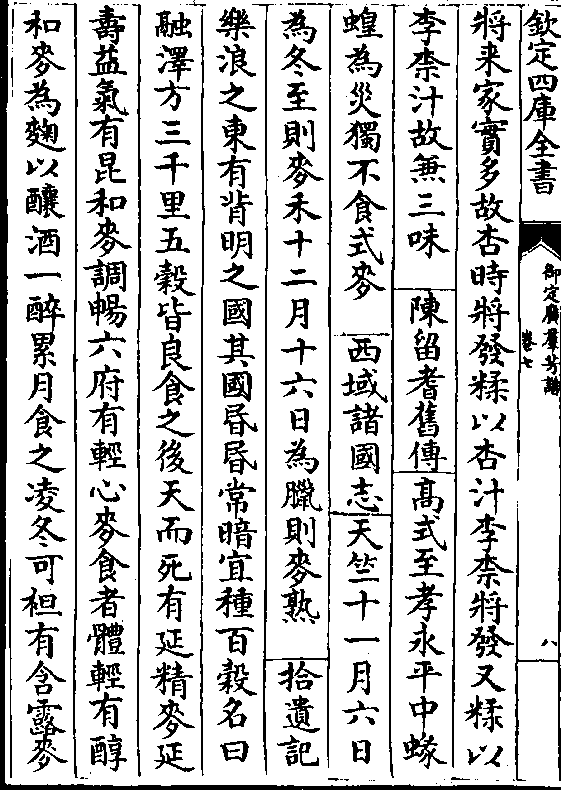 欽定四庫全書
御定廣羣芳譜
卷七
八
將来家實多故杏時將發糅以杏汁李柰將發又糅以
李柰汁故無三味 陳留耆舊傳 髙式至孝永平中蝝
蝗為災獨不食式麥 西域諸國志 天竺十一月六日
為冬至則麥禾十二月十六日為臘則麥熟 拾遺記
樂浪之東有背明之國其國昬昬常暗宜種百穀名曰
融澤方三千里五穀皆良食之後天而死有延精麥延
壽益氣有昆和麥調暢六府有輕心麥食者體輕有醇
和麥為麴以釀酒一醉累月食之凌冬可袒有含露麥